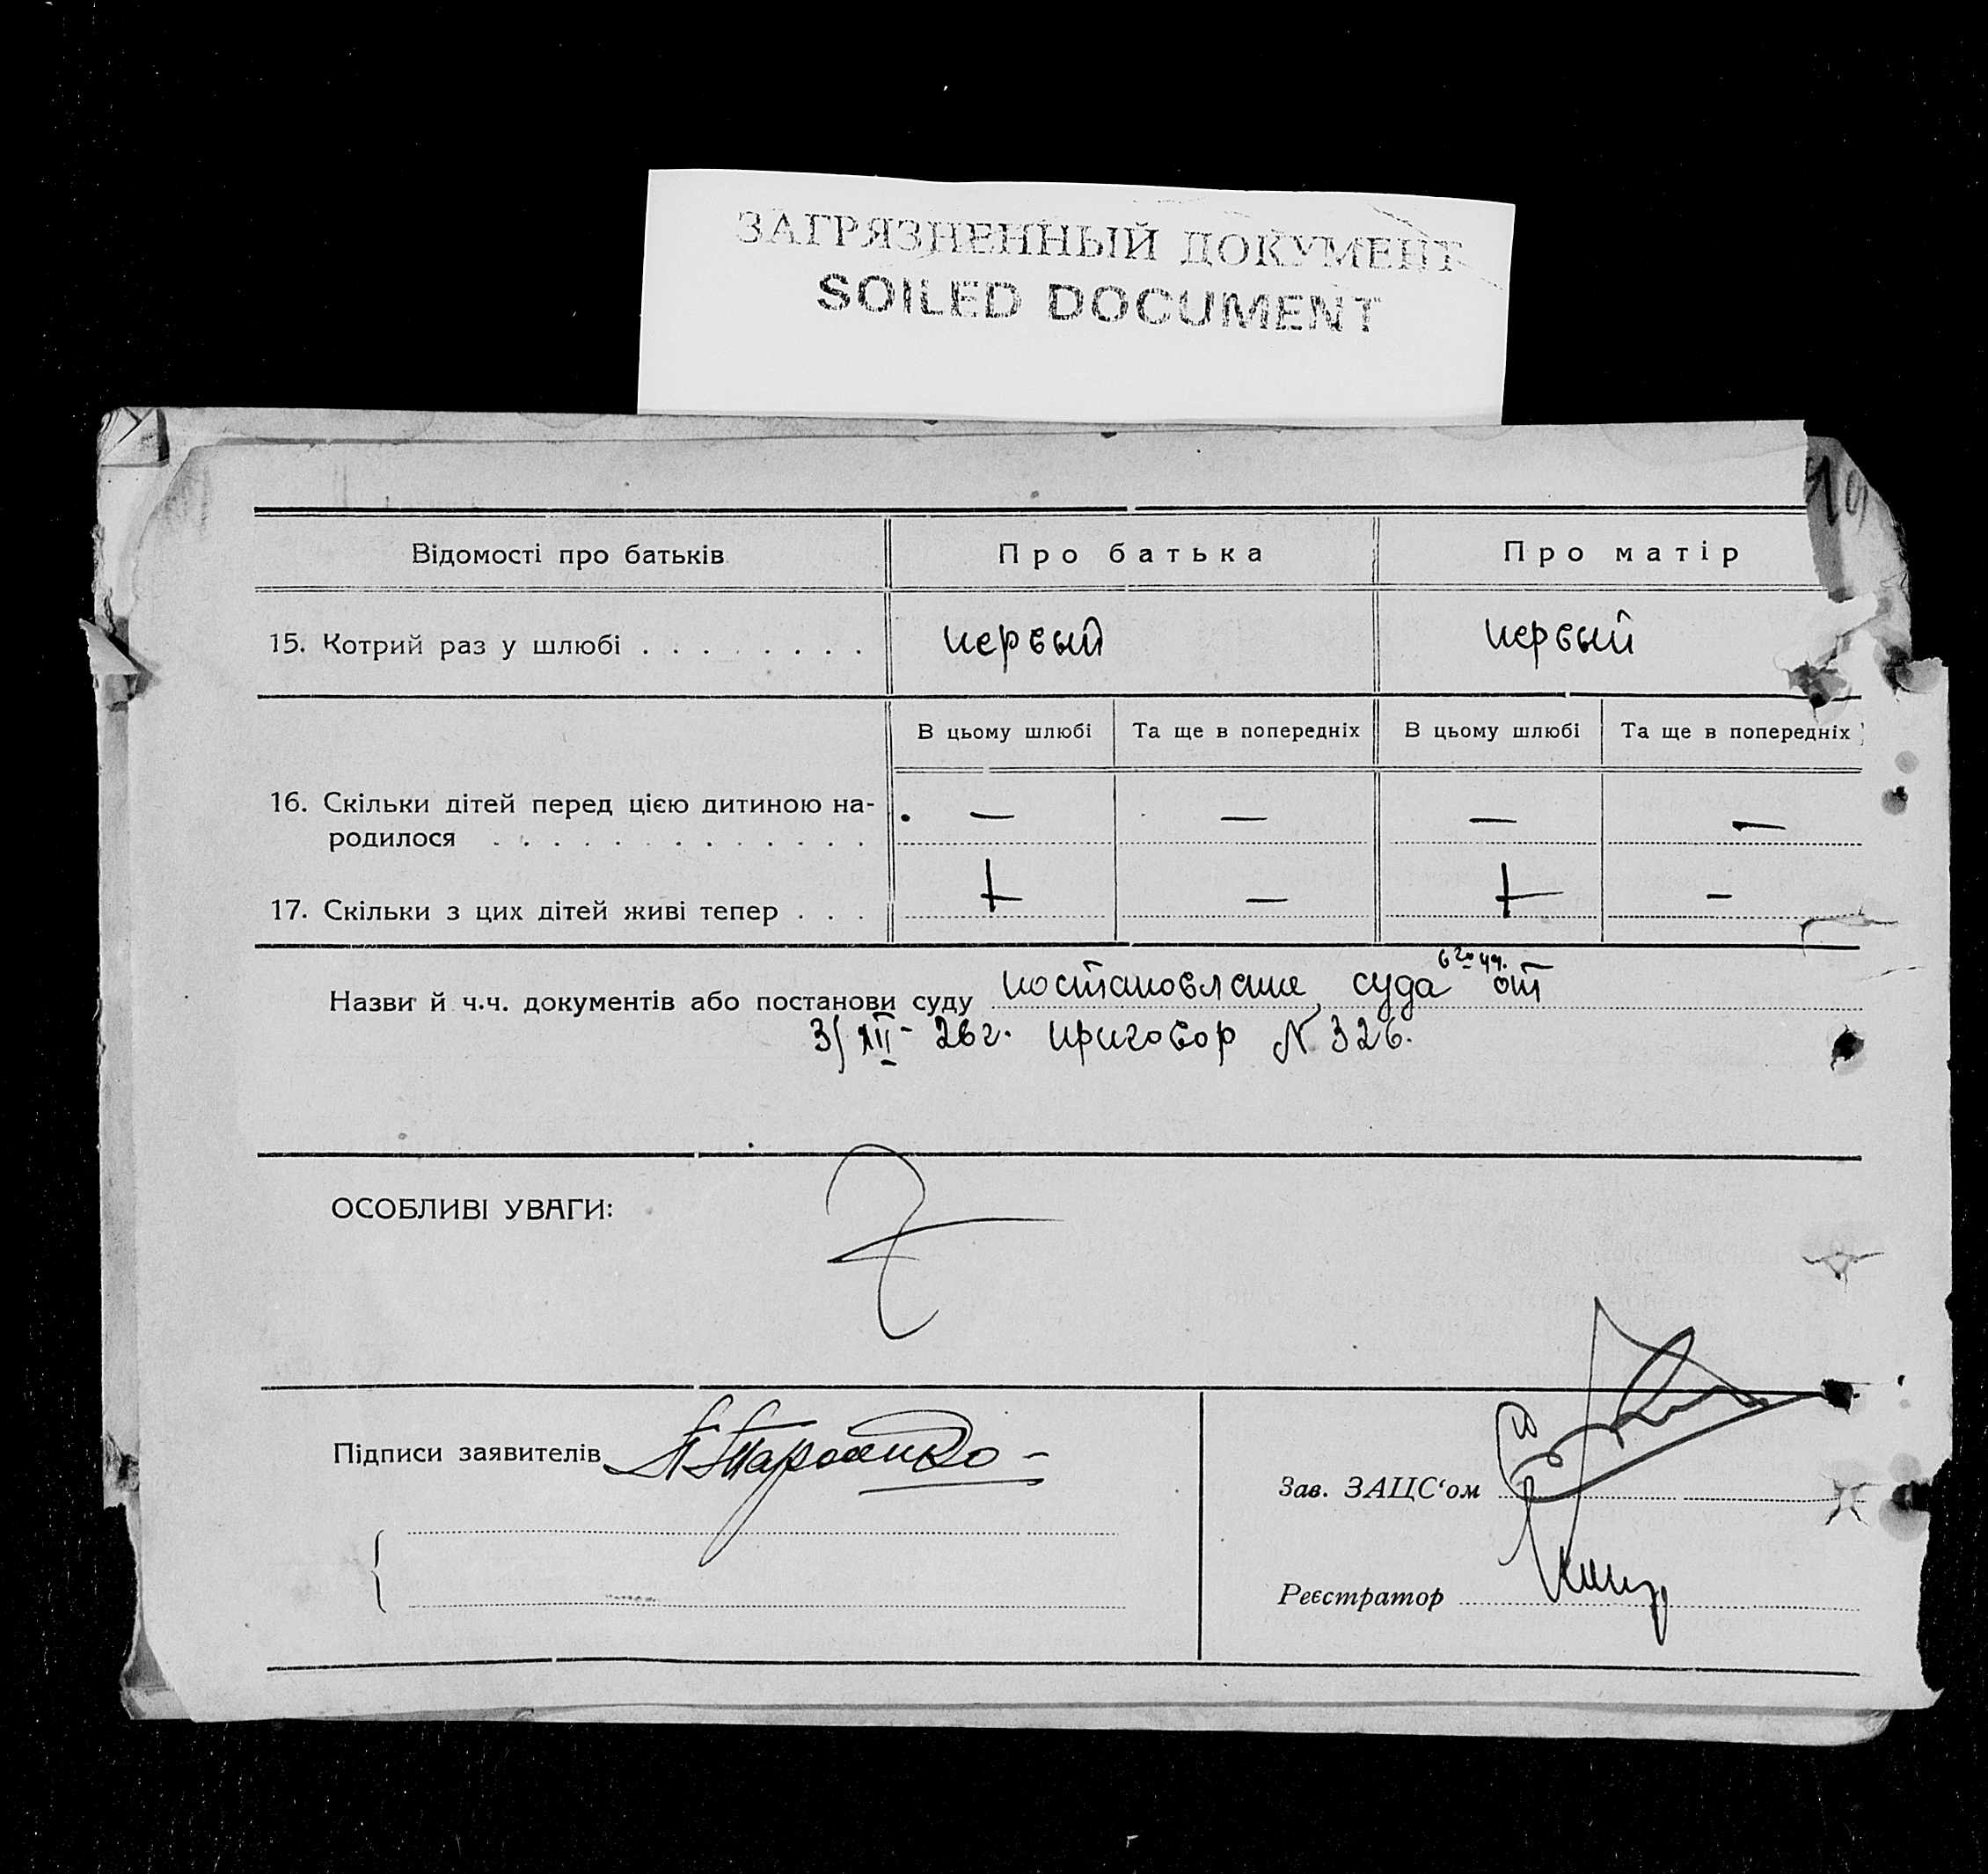 ЗАГРЯЗНЕННЫЙ ДОКУМЕНТ
SOILED DOCUMENT
Відомості про батьків Про батька Про матір
15. Котрий раз у шлюбі . . . . . . . . первый первый
В цьому шлюбі Та ще в попередніх В цьому шлюбі Та ще в попередніх
16. Скільки дітей перед цією дитиною на-
родилося . . . . . . . . . . . . . — — — —
17. Скільки з цих дітей живі тепер . . . + — + —
6го уч.
Назви й ч.ч. документів або постанови суду постановление суда от
3/XII - 26 г. приговор N 326.
ОСОБЛИВІ УВАГИ:
Підписи заявителів
Зав. ЗАЦС‘ом
Реєстратор